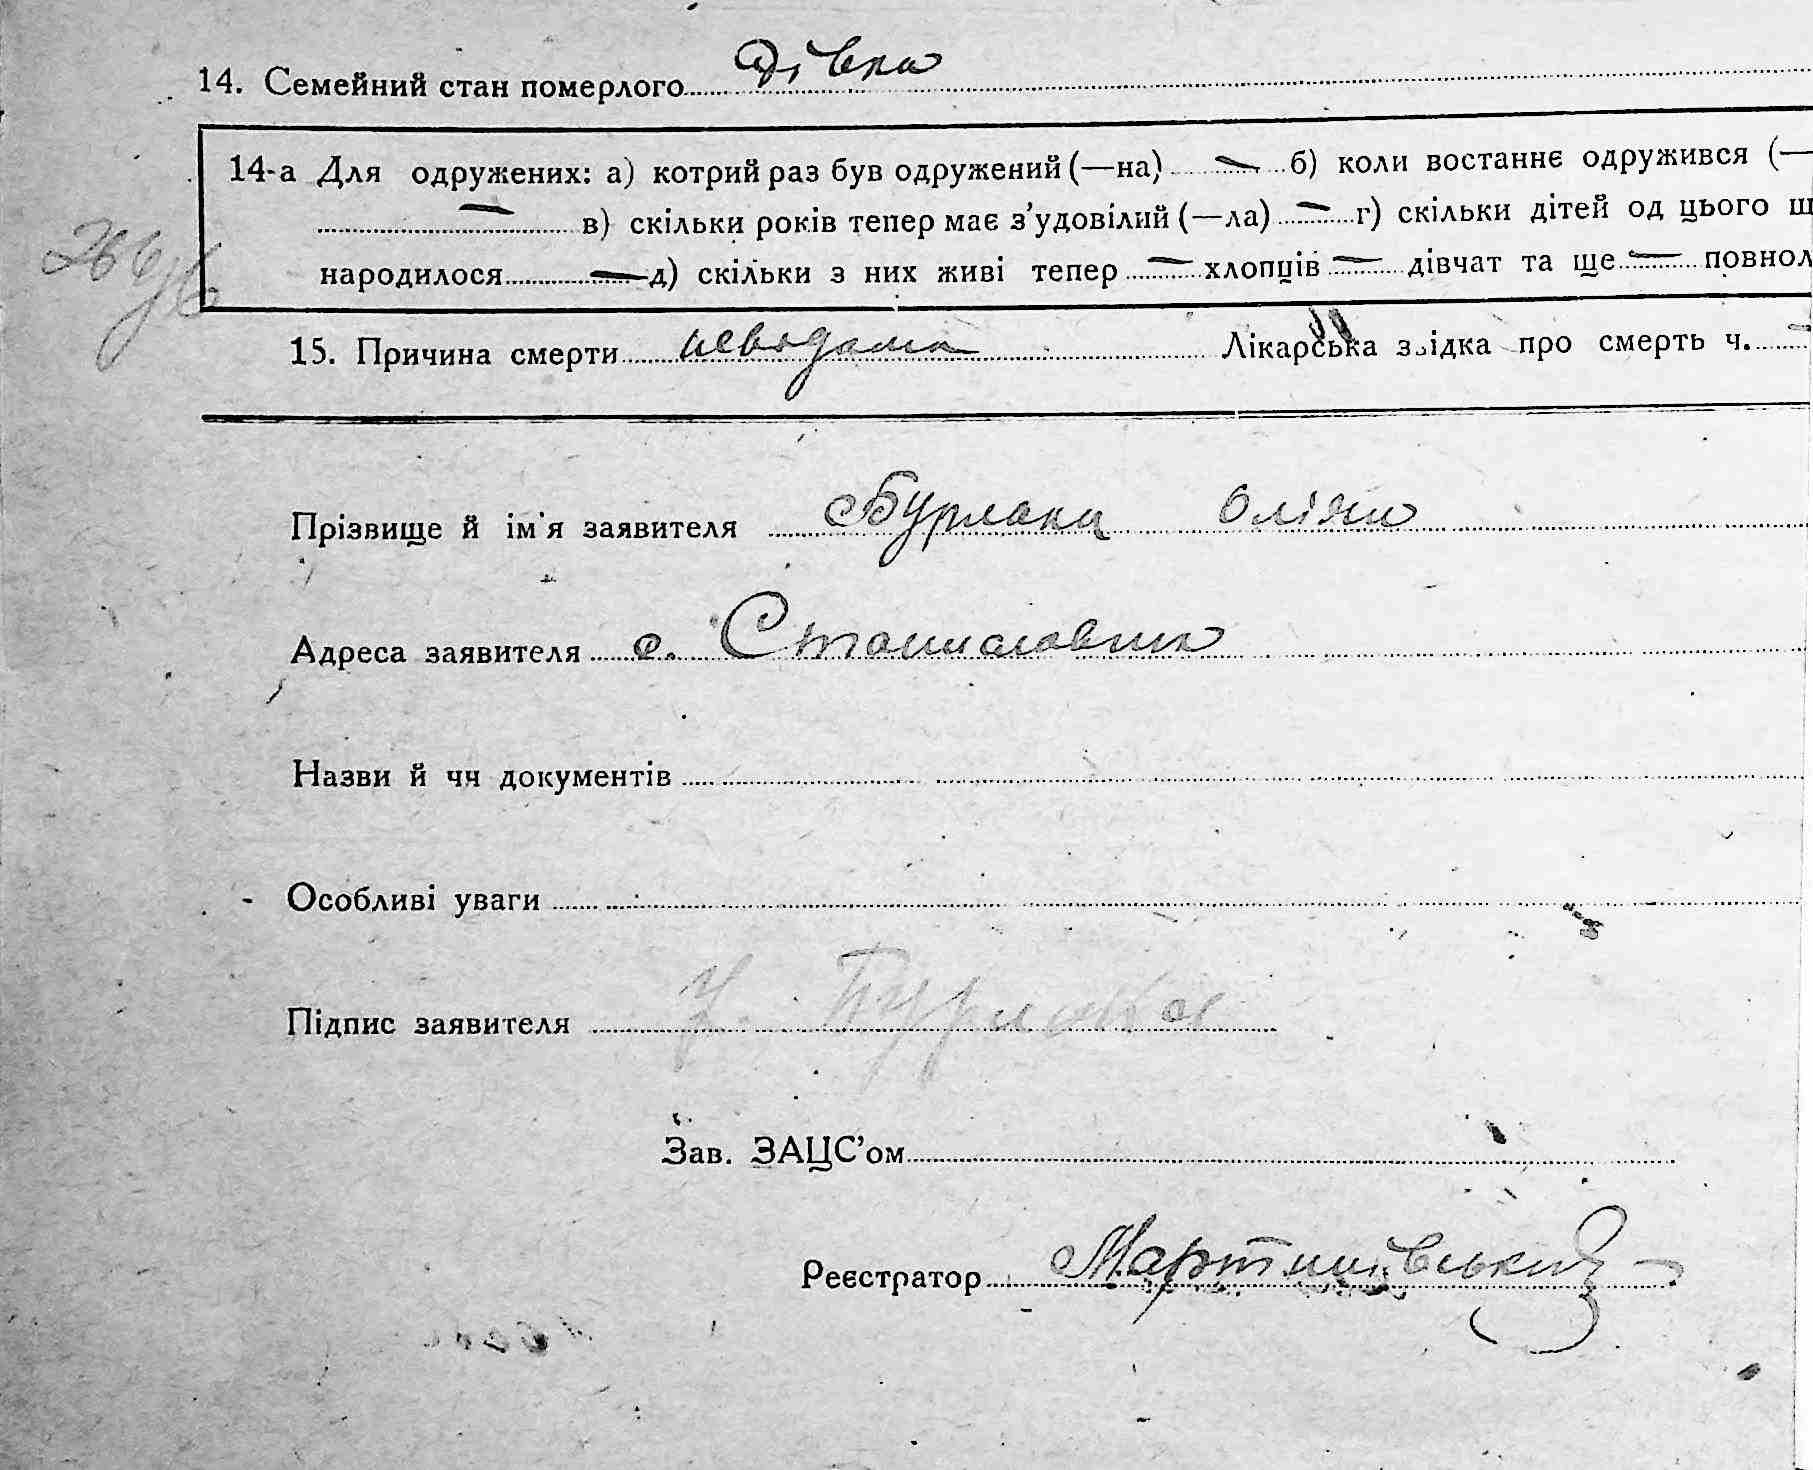 14. Семейний стан померлого дівка
14-а Для одружених: а) котрий раз був одружений (—на) — б) коли востаннє одружився (—
— в) скільки років тепер має з’удовілий (—ла) — г) скільки дітей од цього ш
народилося — д) скільки з них живі тепер — хлопців — дівчат та ще — повнол
15. Причина смерти невідома Лікарська звідка про смерть ч. —
Прізвище й ім'я заявителя Бурлака
Адреса заявителя с. Станиславчик
Назви й чч документів
Особливі уваги
Підпис заявителя Бурлака
Зав. ЗАЦС’ом
Реєстратор Мартинівський